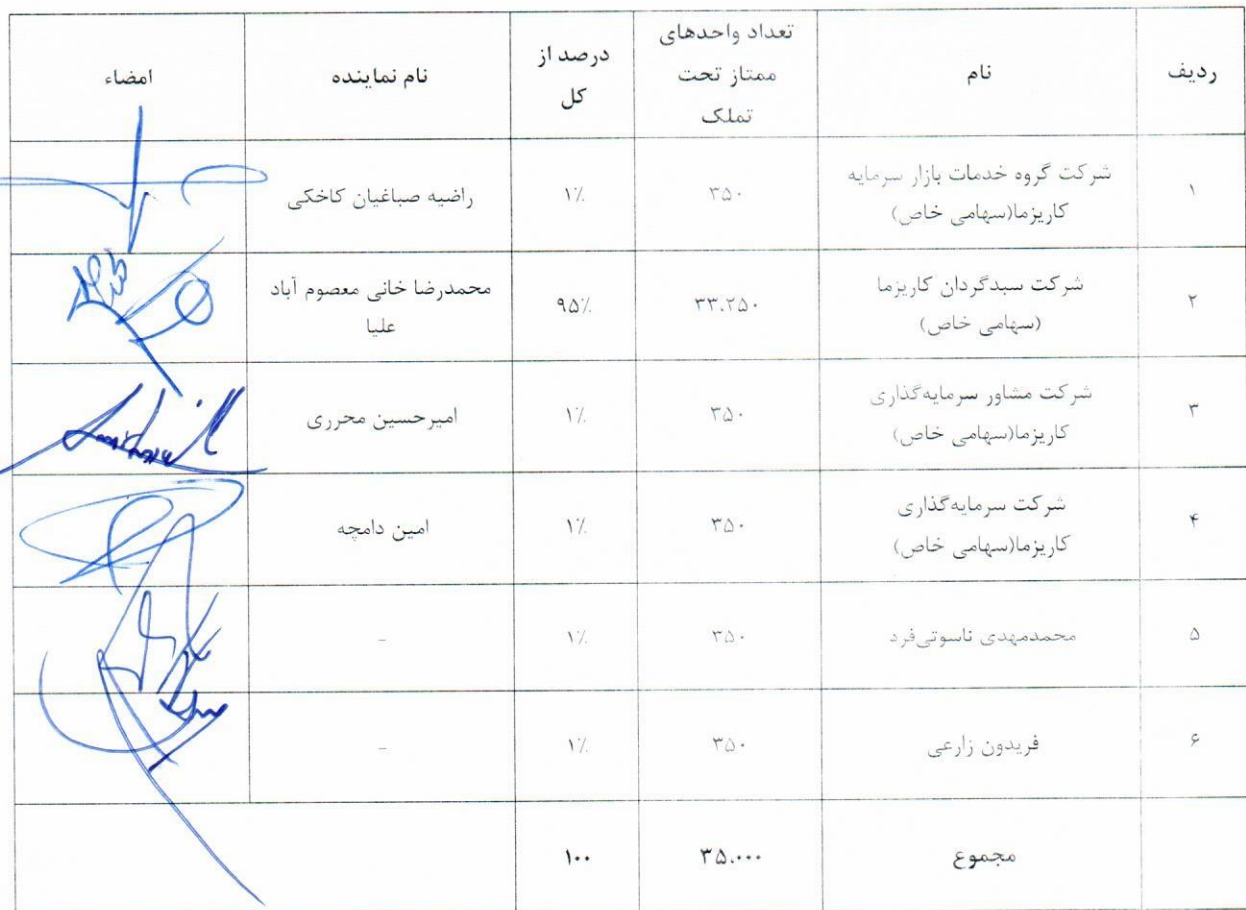 ردیف
نام
تعداد واحدهای
ممتاز تحت
تملک
درصد از
کل
نام نماینده
امضاء
۱
شرکت گروه خدمات بازار سرمایه
کاریزما(سهامی خاص)
۳۵۰
۱٪
راضیه صباغیان کاخکی
۲
شرکت سبدگردان کاریزما
(سهامی خاص)
۳۳.۲۵۰
۹۵٪
محمدرضا خانی معصوم آباد
علیا
۳
شرکت مشاور سرمایه‌گذاری
کاریزما(سهامی خاص)
۳۵۰
۱٪
امیرحسین محرری
۴
شرکت سرمایه‌گذاری
کاریزما(سهامی خاص)
۳۵۰
۱٪
امین دامچه
۵
محمدمهدی ناسوتی‌فرد
۳۵۰
۱٪
-
۶
فریدون زارعی
۳۵۰
۱٪
-
مجموع
۳۵.۰۰۰
۱۰۰